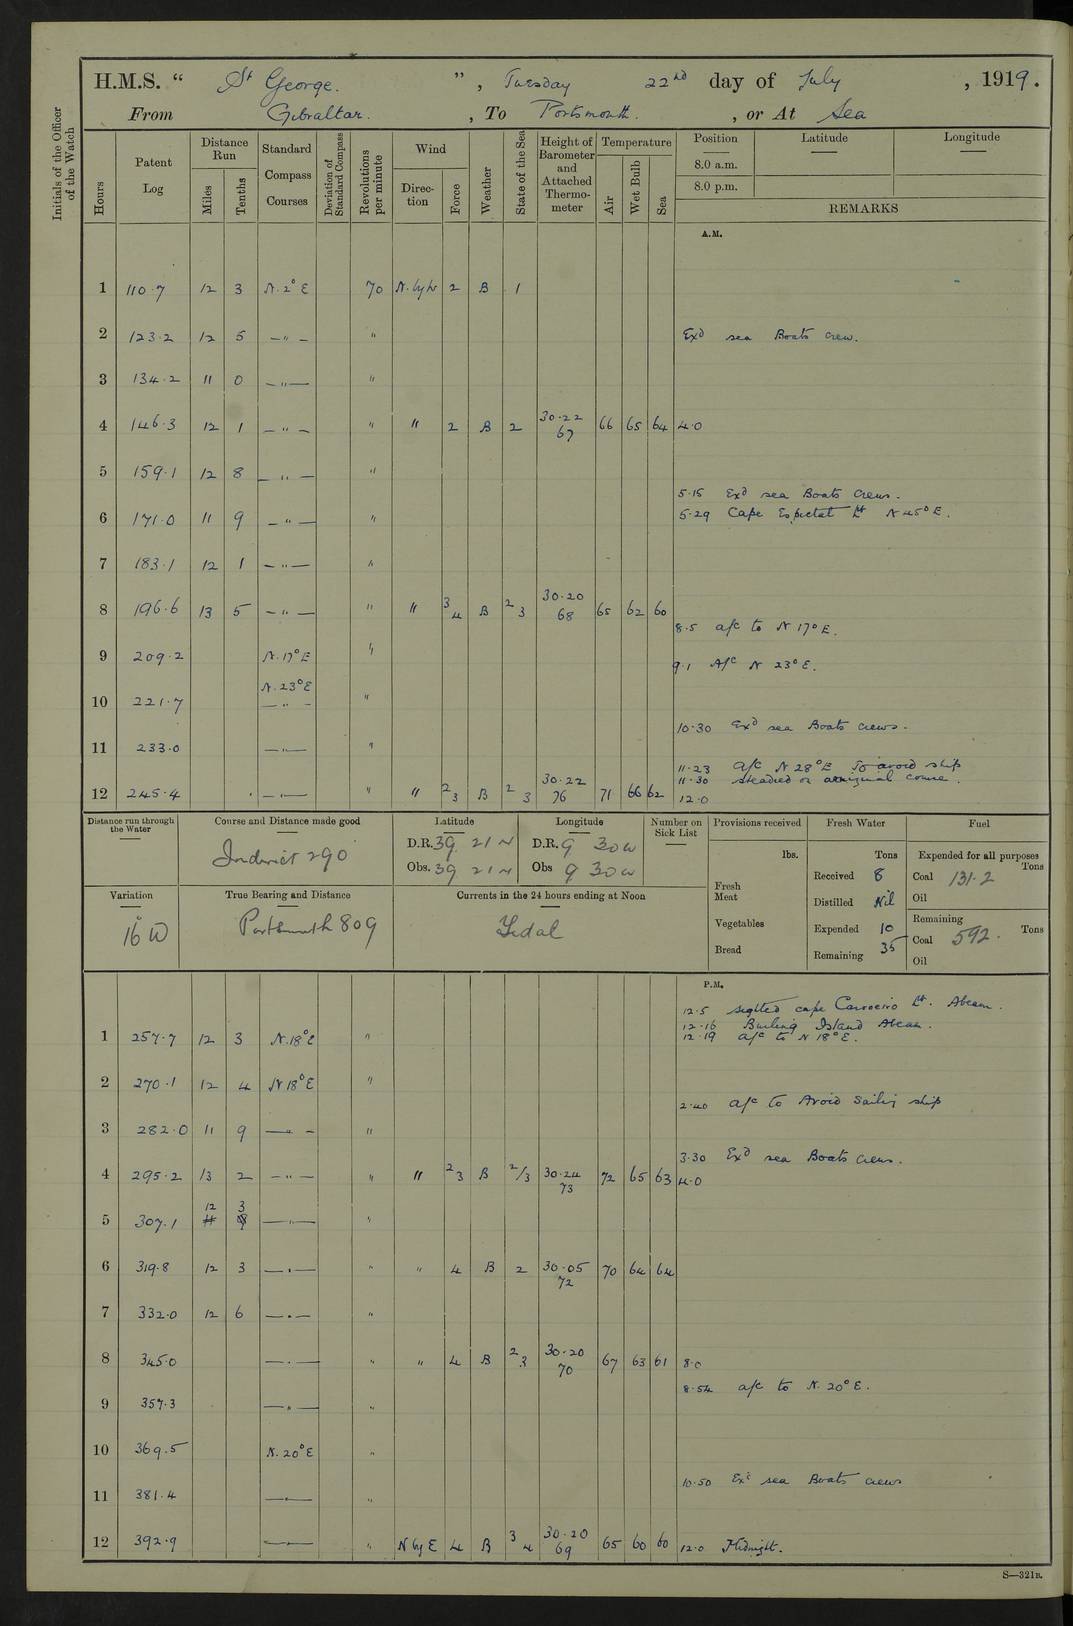 H.M.S. “ St George. ”, Tuesday 22nd day of July, 1919.
From Gibraltar., To Portsmouth., or At Sea
Initials of the Officer of the Watch
Hours Patent Log Distance Run Miles Tenths Standard Compass Courses Deviation of Standard Compass Revolutions per minute Wind Direction Force Weather State of the Sea Height of Barometer and Attached Thermometer Temperature Air Wet Bulb Sea Position Latitude Longitude
8.0 a.m.
8.0 p.m.
REMARKS
A.M.
1 110.7 12 3 N. 2° E 70 N. by W 2 B 1
2 123.2 12 5 —"— " Exd sea Boats crew.
3 134.2 11 0 —"— "
4 146.3 12 1 —"— " " 2 B 2 30.22 67 66 65 64 4.0
5 159.1 12 8 —"— "
5.15 Exd sea Boats crews.
6 171.0 11 9 —"— " 5.29 Cape Espichel Lt N 45° E.
7 183.1 12 1 —"— "
8 196.6 13 5 —"— " " 3 4 B 2 3 30.20 68 65 62 60
8.5 a/c to N 17° E.
9 209.2 N. 17° E " 9.1 A/c N 23° E.
N. 23° E
10 221.7 —"— "
10.30 Exd sea Boats crews.
11 233.0 —"— "
11.23 a/c N 28° E to avoid ship
11.30 steadied on original course.
12 245.4 —"— " " 2 3 B 2 3 30.22 76 71 66 62 12.0
Distance run through the Water Course and Distance made good Latitude Longitude Number on Sick List Provisions received Fresh Water Fuel
Indirect 290 D.R. 39 21 N D.R. 9 30 W
Obs. 39 21 N Obs 9 30 W
lbs. Tons Expended for all purposes Tons
Fresh Meat Received 8 Coal 131.2
Distilled Nil Oil
Variation True Bearing and Distance Currents in the 24 hours ending at Noon
16° W Portsmouth 809 Tidal
Vegetables Expended 10 Remaining Coal 592. Tons
Bread Remaining 35 Oil
P.M.
12.5 sighted cape Carvoeiro Lt. Abeam.
12.16 Burling Island Abeam.
1 257.7 12 3 N. 18° E " 12.19 a/c to N 18° E.
2 270.1 12 4 N 18° E "
2.40 a/c to Avoid Sailing ship
3 282.0 11 9 —"— "
3.30 Exd sea Boats crews.
4 295.2 13 2 —"— " " 2 3 B 2/3 30.24 73 72 65 63 4.0
5 307.1 12 3 —"— "
6 319.8 12 3 —"— " " 4 B 2 30.05 72 70 64 64
7 332.0 12 6 —"— "
8 345.0 —"— " " 4 B 2 3 30.20 70 67 63 61 8.0
8.54 a/c to N. 20° E.
9 357.3 —"— "
10 369.5 N. 20° E "
10.50 Exd sea Boats crews
11 381.4 —"— "
12 392.9 —"— " N by E 4 B 3 4 30.20 69 65 60 60 12.0 Midnight.
S—321B.